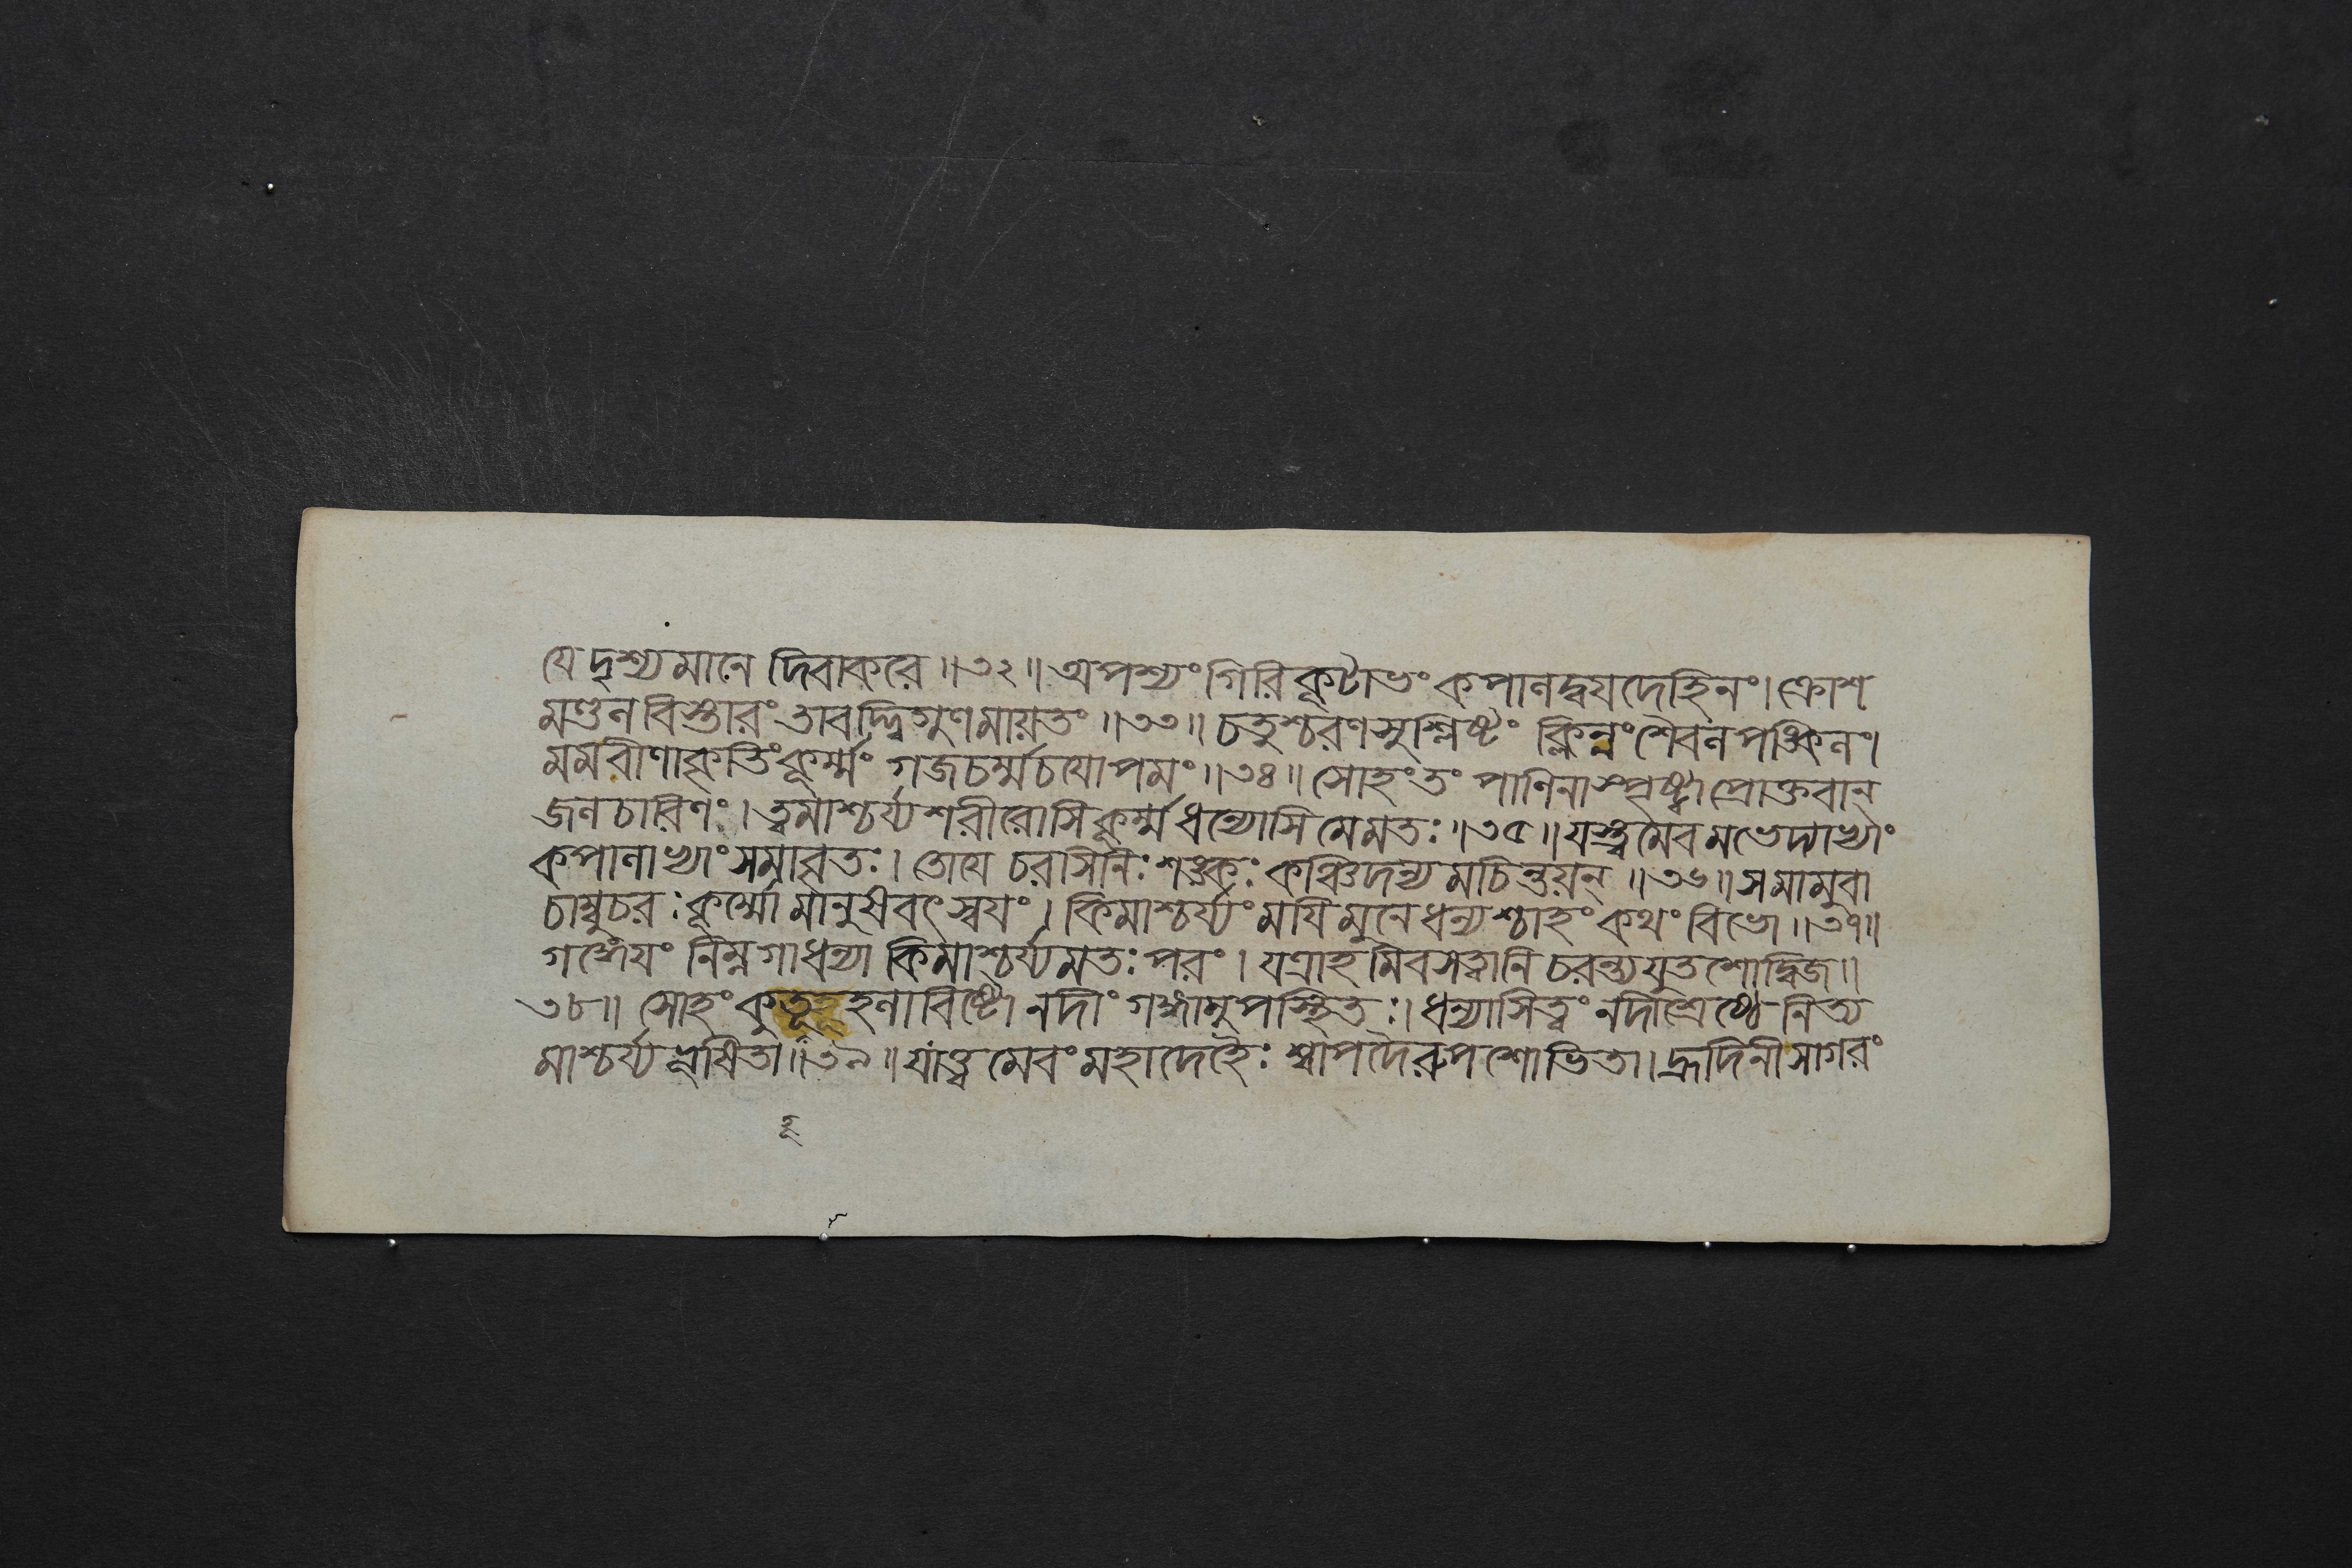 যে দৃশ্যমানে দিবাকরে ॥৩২॥ অপশ্যং গিরিকূটাভং কপালদ্বযদেহিনং। ক্রোশ
মণ্ডলবিস্তারং তাবদ্দ্বিগুণমায়তং ॥৩৩॥ চতুশ্চরণসুশ্লিষ্টং ক্লিন্নং শৈবলপঙ্কিলং।
মম বীণাকৃতিং কূর্ম্মং গজচর্ম্মচযোপমং ॥৩৪॥ সোহং তং পাণিনা স্পৃষ্ট্বা প্রোক্তবান্
জলচারিণং। ত্বমাশ্চর্য্যশরীরোসি কূর্ম্ম ধন্যোসি মে মতঃ ॥৩৫॥ যস্ত্বমেবমভেদ্যাভ্যাং
কপালাভ্যাং সমাবৃতঃ। তোযে চরসি নিঃশঙ্কঃ কঞ্চিদন্যমচিন্তয়ন্ ॥৩৬॥ স মামুবা
চাম্বুচরঃ কূর্ম্মো মানুষবৎ স্বযং। কিমাশ্চর্য্যং মযি মুনে ধন্যশ্চাহং কথং বিভো ॥৩৭॥
গঙ্গেযং নিম্নগা ধন্যা কিমাশ্চর্য্যমতঃ পরং। যত্রাহমিব সত্বানি চরন্ত্যযুতশো দ্বিজ॥
৩৮॥ সোহং কুতূহলাবিষ্টো নদীং গঙ্গামুপস্থিতঃ। ধন্যাসি ত্বং নদীশ্রেষ্ঠে নিত্য
মাশ্চর্য্যভূষিতা॥৩৯॥ যাত্ত্বমেবং মহাদেহৈঃ শ্বাপদৈরুপশোভিতা। হ্রদিনী সাগরং
তূ